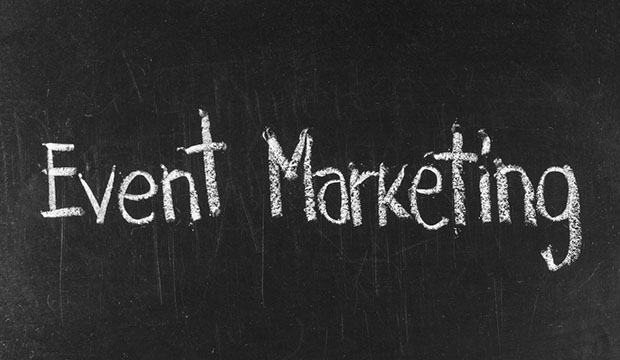 Event Marketing